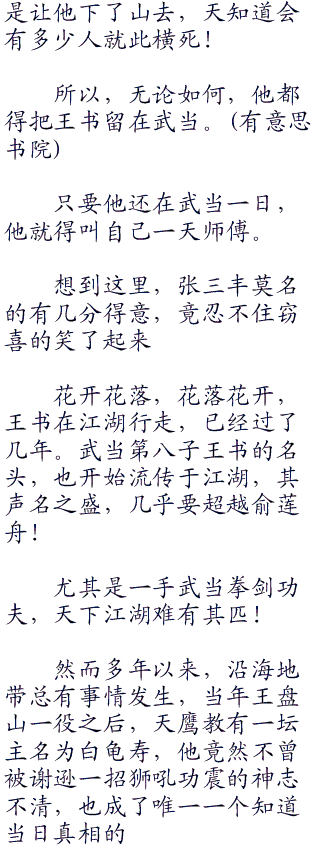 是让他下了山去，天知道会
有多少人就此横死！
所以，无论如何，他都
得把王书留在武当。(有意思
书院)
只要他还在武当一日，
他就得叫自己一天师傅。
想到这里，张三丰莫名
的有几分得意，竟忍不住窃
喜的笑了起来
花开花落，花落花开，
王书在江湖行走，已经过了
几年。武当第八子王书的名
头，也开始流传于江湖，其
声名之盛，几乎要超越俞莲
舟！
尤其是一手武当拳剑功
夫，天下江湖难有其匹！
然而多年以来，沿海地
带总有事情发生，当年王盘
山一役之后，天鹰教有一坛
主名为白龟寿，他竟然不曾
被谢逊一招狮吼功震的神志
不清，也成了唯一一个知道
当日真相的